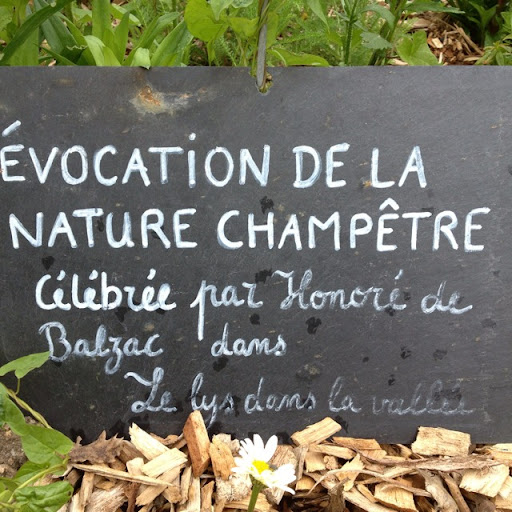 ÉVOCATION DE LA
NATURE CHAMPÊTRE
Célébrée par Honoré de
Balzac dans
Le lys dans la vallée